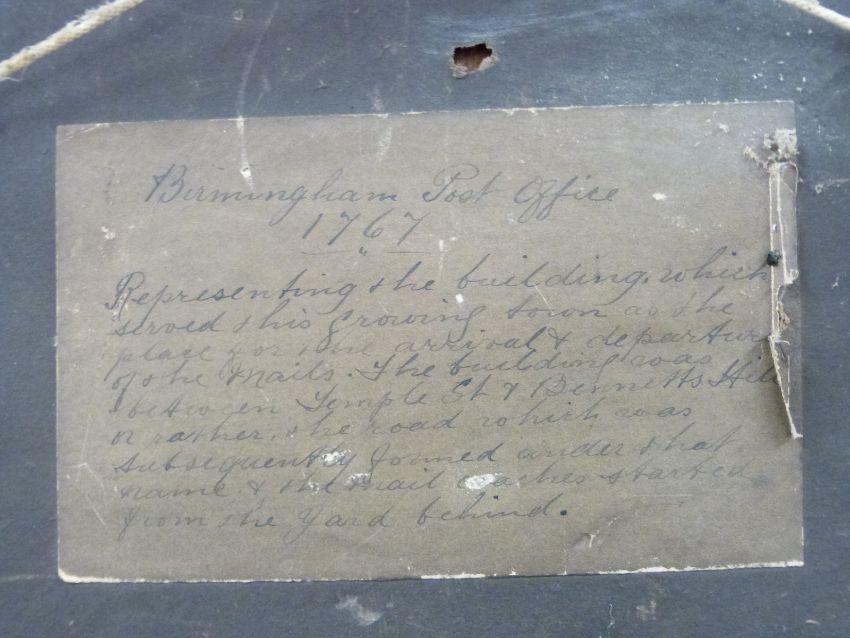 Birmingham Post Office
1767
Representing the building, which
served this growing town as the
place for the arrival & departure
of the Mails. The building was
between Temple St & Bennetts Hill
or rather, the road which was
subsequently formed under that
name. & the mail coaches started
from the Yard behind.